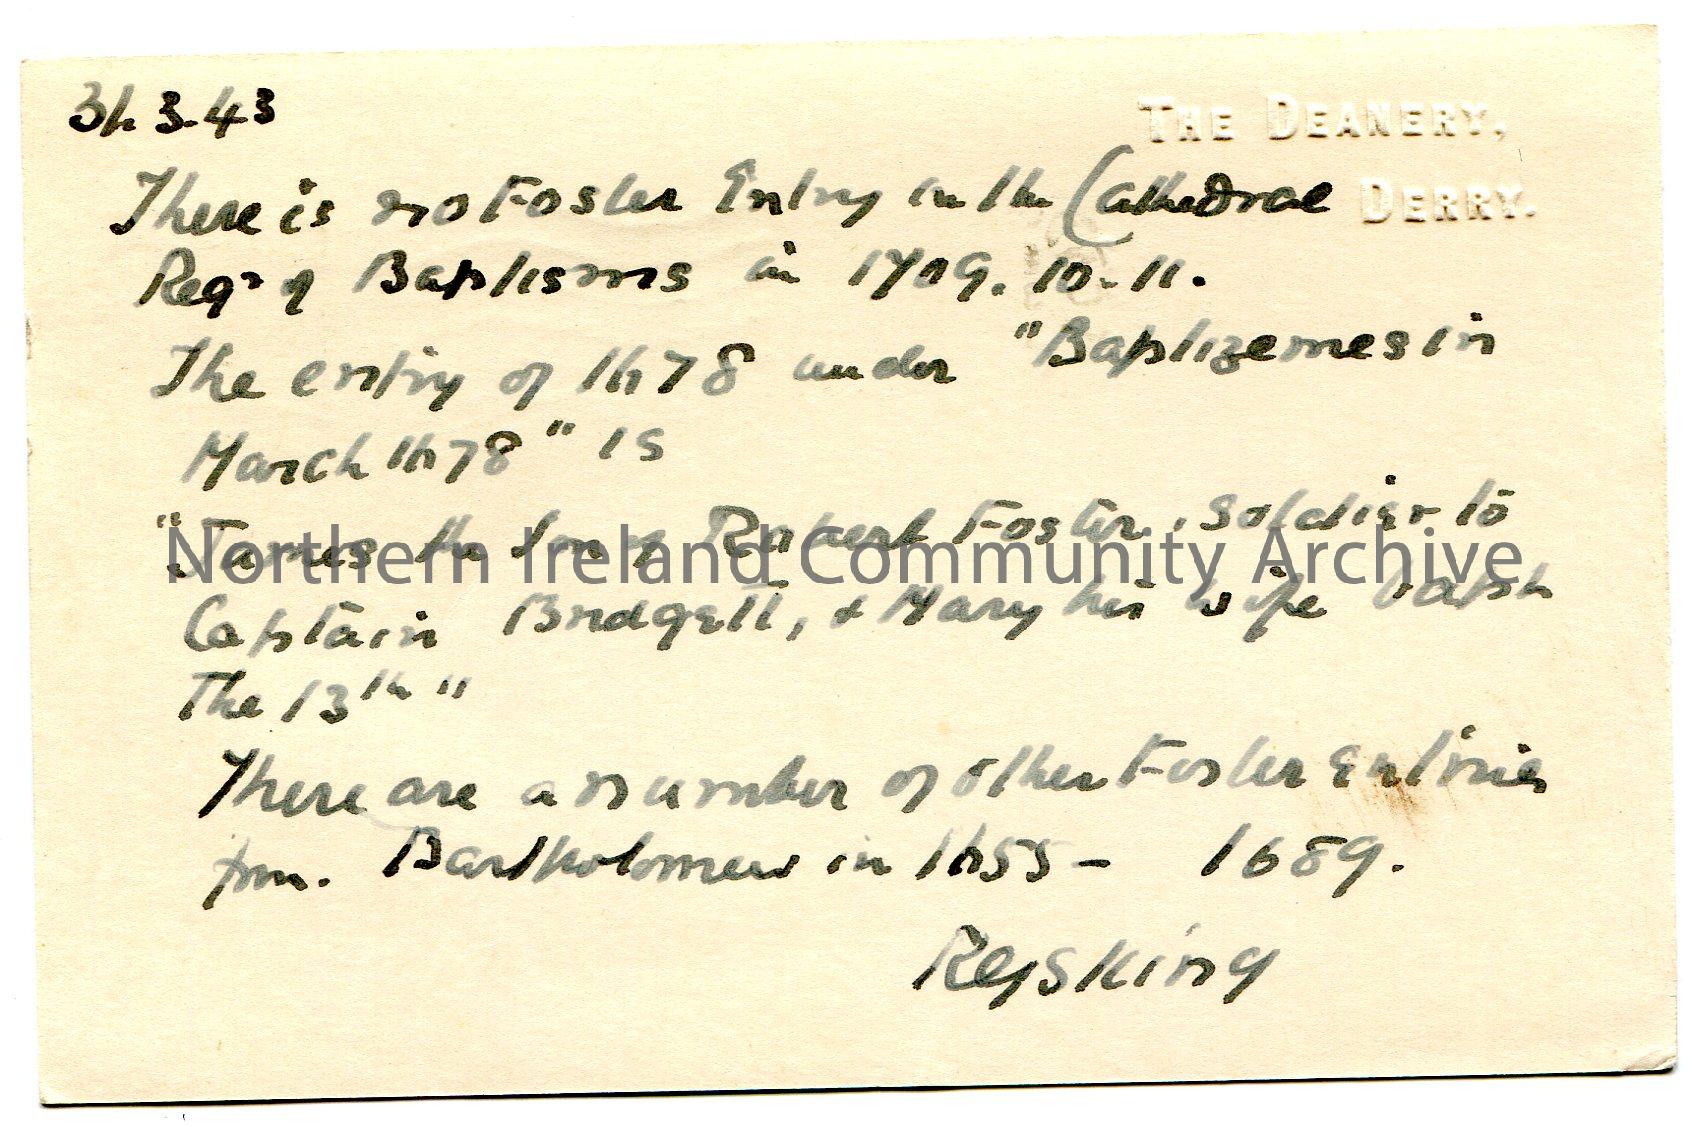 3-43
THE DEANERY,
DERRY.
There is no Foster Entry in the Cathedral
Regr of Baptisms in 1709. 10-11.
The entry of 1678 under "Baptizemes in
March 1678" is
"James the son of Robert Foster, soldier to
Northern Ireland Community Archive
Captain Bridgett, & Mary his wife bapt
The 13th"
There are a number of other Foster Entries
from. Bartholomew in 1655 - 1689.
RGSKing